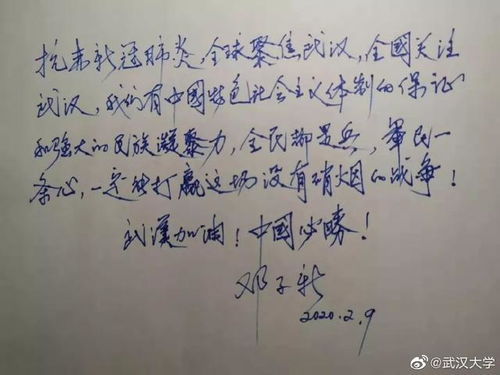 抗击新冠肺炎,全球聚焦武汉,全國关注
武汉,我们有中國特色社会主义体制的保证
和强大的民族凝聚力,全民都是兵,軍民一
条心,一定能打赢这场没有硝烟的战争!
武漢加油!中國必勝!
邓子新
2020.2.9
@武汉大学